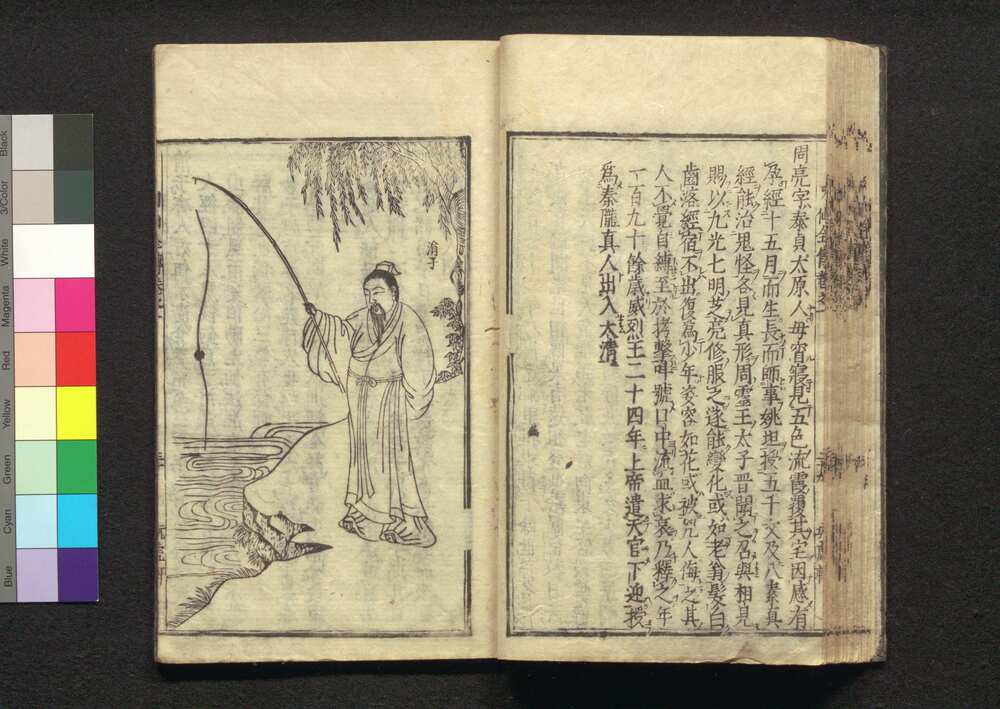 周亮字泰貞太原人毋宵寢見五色流霞覆其宅因感有
孕經十五月而生長而師事姚坦授五千文及八素真
經能治鬼怪各見真形周靈王太子晋聞之召與相見
賜以九光七明芝亮修服之遂能變化或如老翁髮白
齒落經宿不出復為少年姿容如花或被咒人侮之其
人不覺自縛至於拷擊呼號口中流血求哀乃釋之年
一百九十餘歲威烈王二十四年上帝遣天官下迎授
爲秦隴真人出入太清
涓子
Black
3/Color
White
Magenta
Red
Yellow
Green
Cyan
Blue